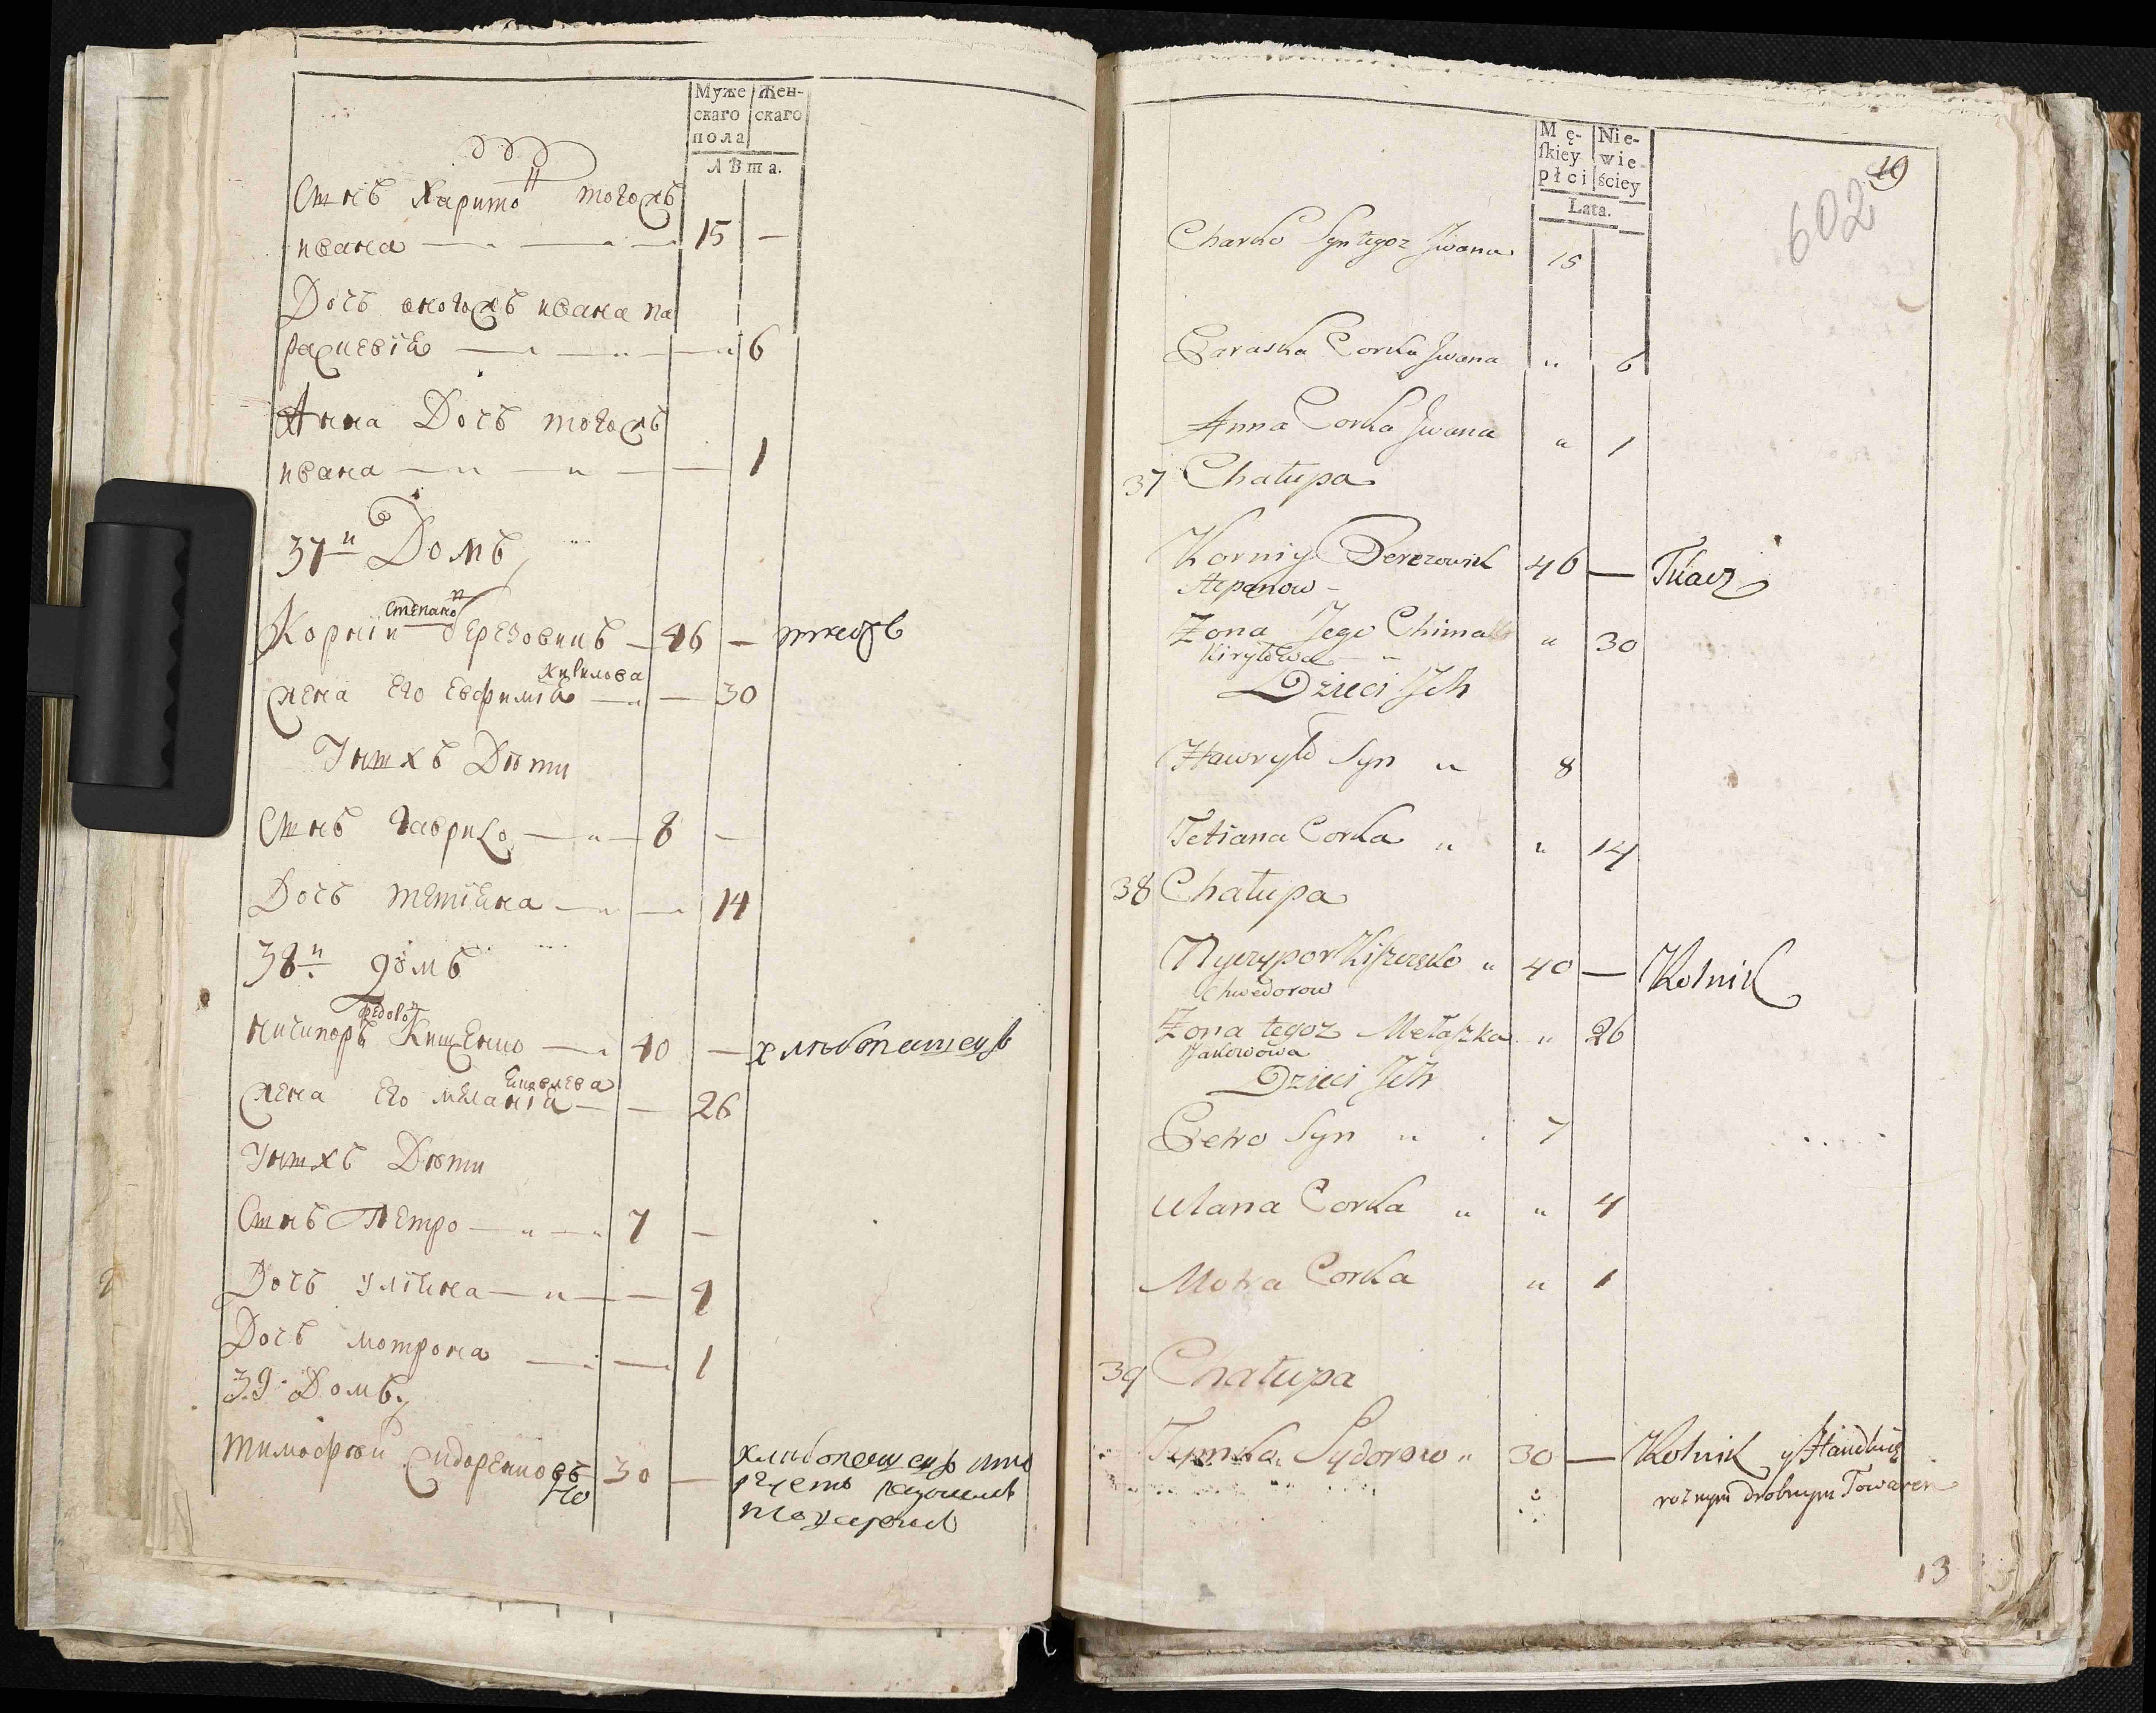 Муже
скаго
пола
Жен-
скаго
Лѣта.
Сынъ Харитон тогожъ
ивана — 15 —
Дочь оногожъ ивана па
раскевія — — 6
Анна Дочь тогожъ
ивана — — 1
37й Домъ
Степанов
Корній березовикъ — 46 — ткачъ
Кирилова
жена Его Евфимія — — 30
У ныхъ Дѣти
Сынъ Гаврило — 8 —
Дочь тетіяна — — 14
38й домъ
Федоров
ничипоръ Кищенко — 40 — хлѣбопашецъ
Яковлева
жена Его меланія — — 26
У ныхъ Дѣти
Сынъ Петро — 7 —
Дочь уліяна — — 4
Дочь мотрона — — 1
39. Домъ
тимофѣй Сидоренковъ 30 — хлѣбопашецъ
ко
товаромъ
Mę-
ſkiey
płci
Nie-
wie-
ściey
Lata.
19
602
Charko Syn tegoz Jwana 15
Paraska Corka Jwana " 6
Anna Corka Jwana " 1
37 Chałupa
Korniy Berezowik 46 — Tkacz
Stepanow -
Zona Jego Chima " 30
Kiryłowa "
Dzieci Jch
Hawryło Syn " 8
Tetiana Corka " " 14
38 Chałupa
Nyczypor Kiszczeko " 40 — Rolnik
Chwedorow
Zona tegoz Małaszka " 26
Jakowowa
Dzieci Jch
Petro Syn " 7
Ulana Corka " " 4
Motra Corka " 1
39 Chałupa
Tymko Sydorow " 30 — Rolnik y Handluię
roznym drobnym Towarem
13